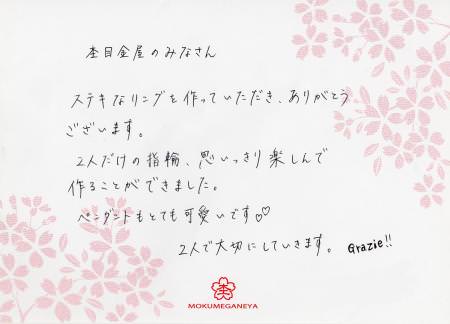 杢目金屋のみなさん
ステキなリングを作っていただき、ありがとう
ございます。
2人だけの指輪、思いっきり楽しんで
作ることができました。
ペンダントもとても可愛いです♡♡
2人で大切にしていきます。 Grazie!!
MOKUMEGANEYA